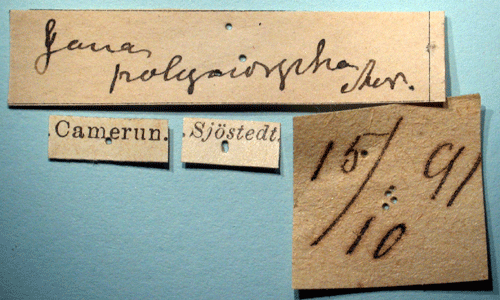 Jana
polymorpha
Aur.
.Camerun.
.Sjöstedt.
15/10 91